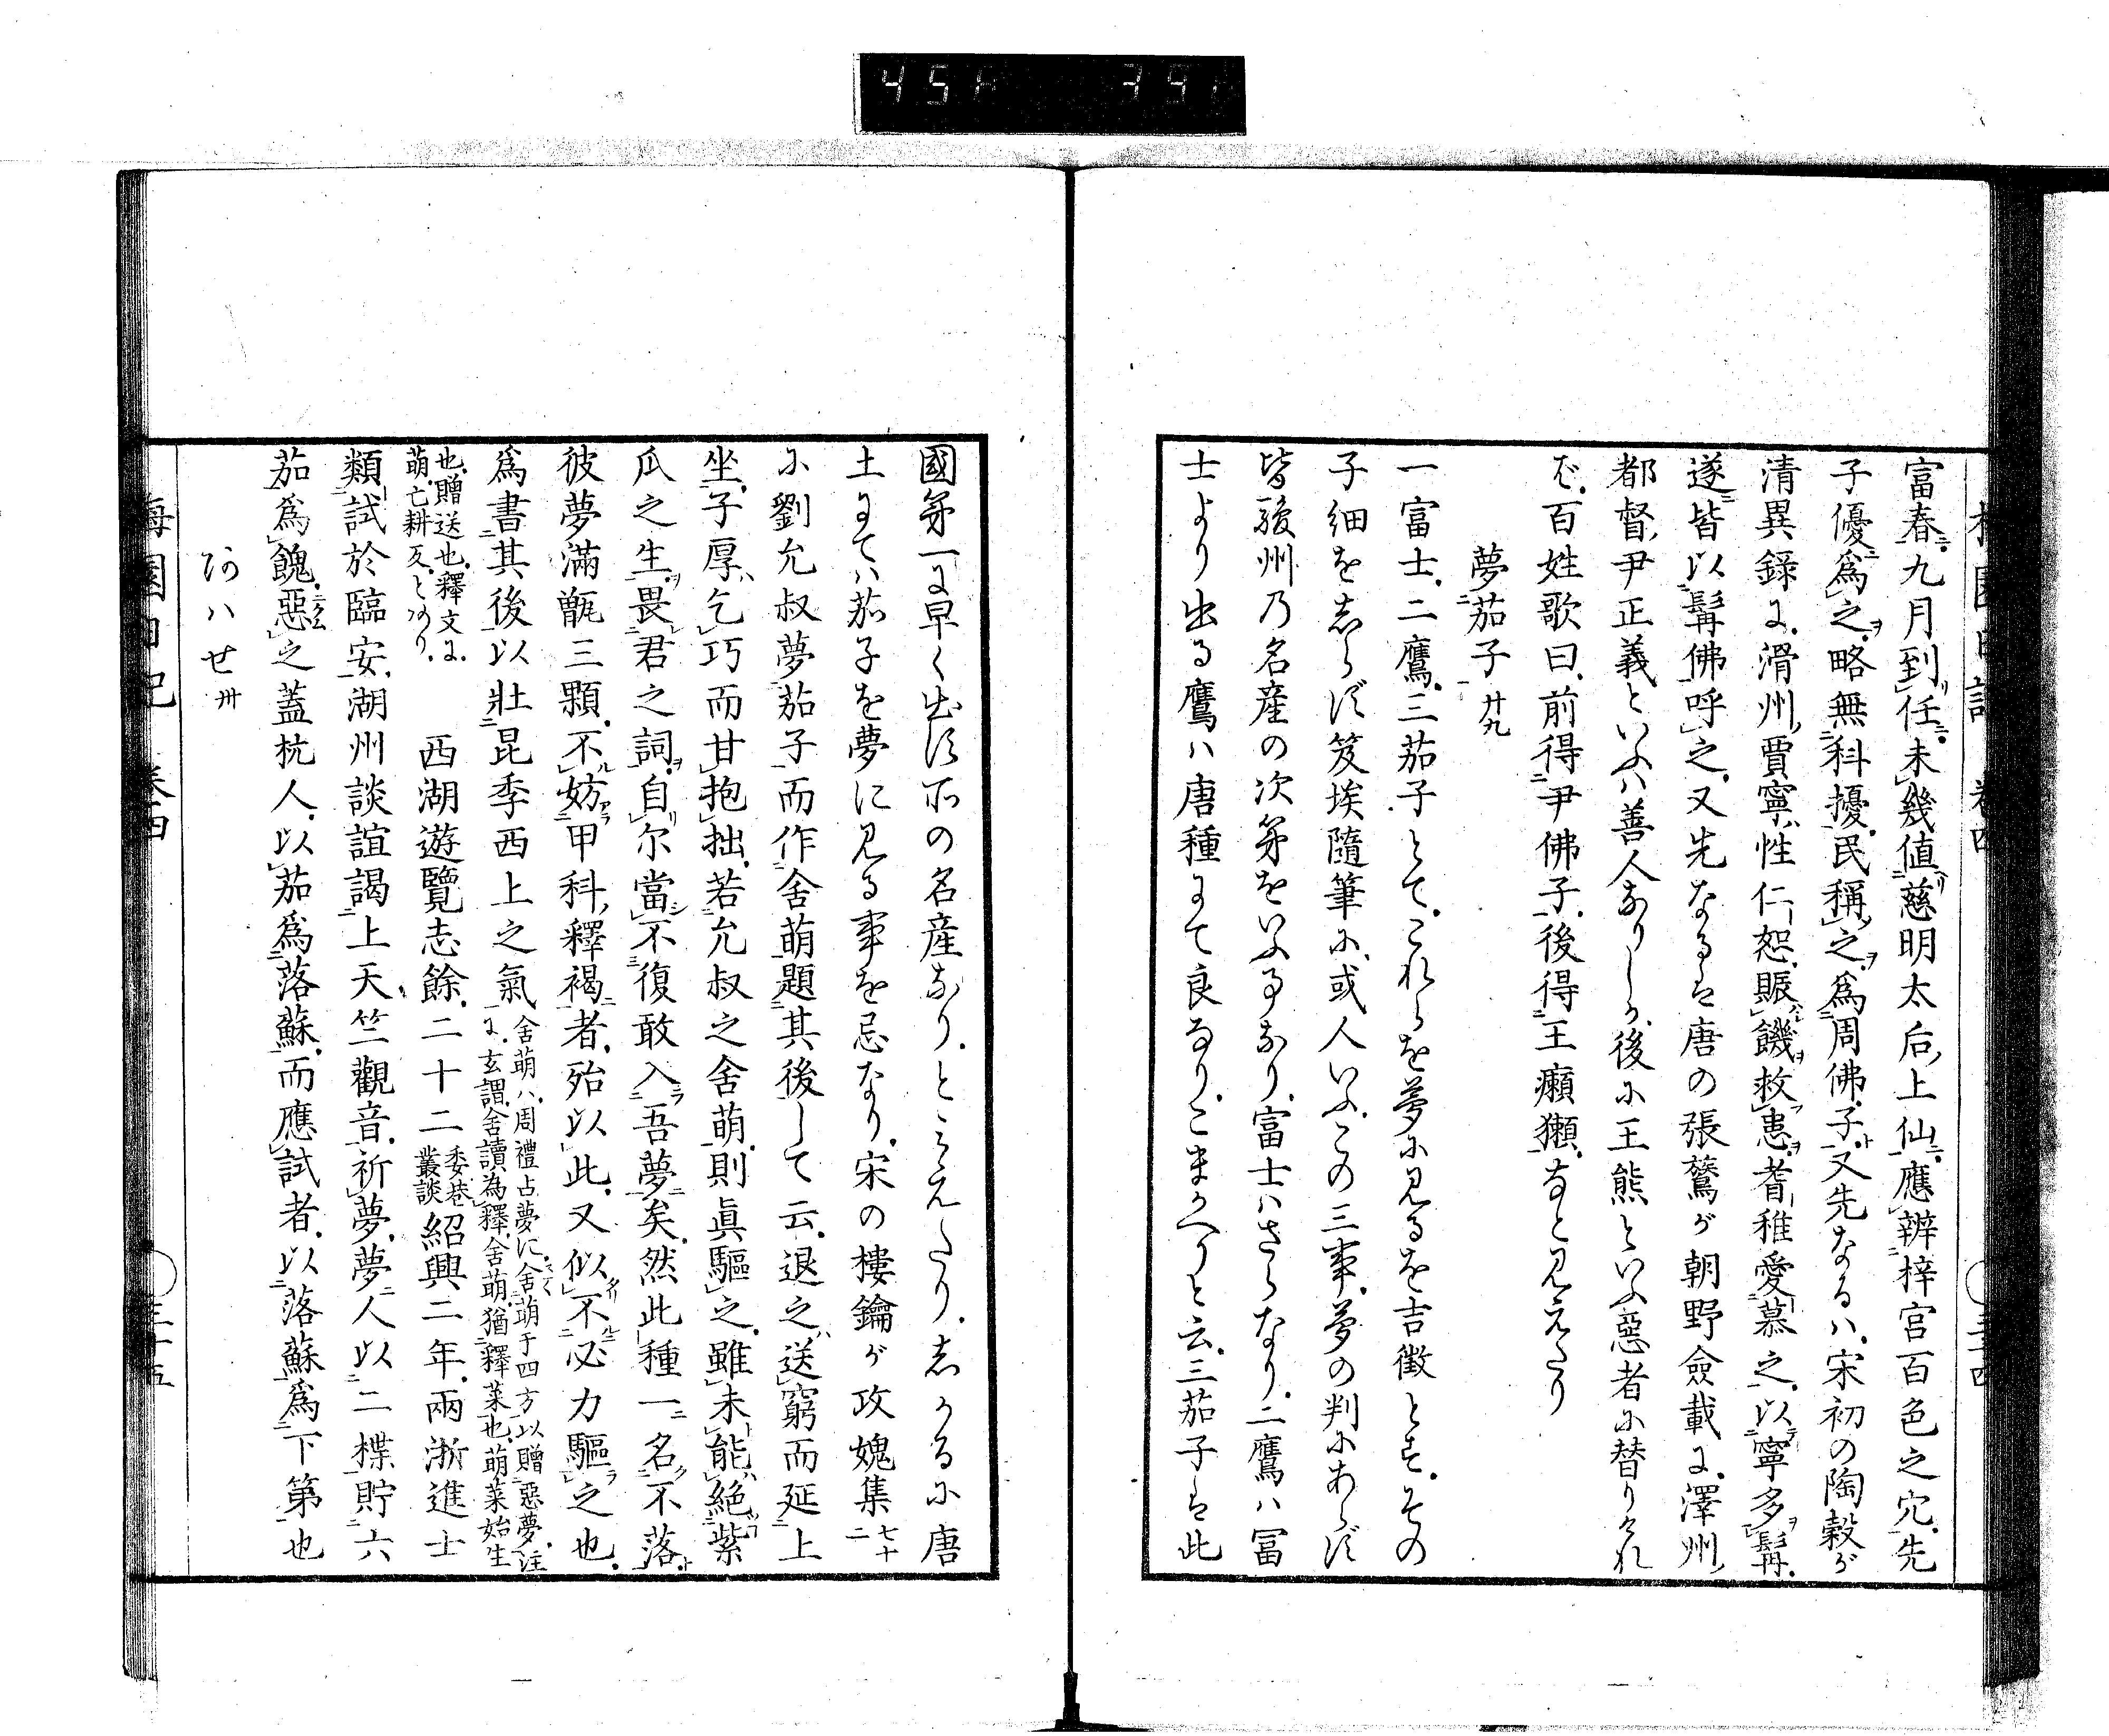 富春、九月到任、未幾値慈明太后、上仙、應辨梓宮百色之冗、先
子優爲之、略無科擾、民稱之、爲周佛子、又先なるハ、宋初の陶穀が
清異錄に、滑州、賈寧、性仁恕、賑饑救患、耆稚愛慕之、以寧多髯、
遂皆以髯佛呼之、又先なるは唐の張鷟が朝野僉載に、澤州、
都督、尹正義といふハ善人なりしが、後に王熊といふ惡者に替りけれ
ば、百姓歌曰、前得尹佛子、後得王癩獺、など見えたり
夢茄子 廿九
一富士、二鷹、三茄子とて、これらを夢に見るを吉徴とす、その
子細をしらず笈埃隨筆に、或人いふ、この三事、夢の判にあらず
皆駿州乃名産の次第をいふ事なり、富士ハさらなり、二鷹ハ冨
士より出る鷹ハ唐種にて良なり、こまがへりと云、三茄子は此
國第一に早く出す所の名産なり、ときこえたり、しかるに唐
土にてハ茄子を夢に見る事を忌なり、宋の樓鑰が攻媿集七十二
に劉允叔夢茄子而作舍萌題其後して云、退之送窮而延上
坐、子厚乞巧而甘抱拙、若允叔之舍萌、則眞驅之、雖未能絕紫
瓜之生、畏君之詞、自尔當不復敢入吾夢矣、然此種一名不落、
彼夢滿甑三顆、不妨甲科、釋褐者、殆以此、又似不必力驅之也、
爲書其後以壯昆季西上之氣 舍萌ハ、周禮占夢に、舍萌于四方以贈惡夢、注
に、玄謂、舍讀為釋、舍萌、猶釋菜也、萌菜始生
也、贈送也、釋文に、
萌、亡耕反、とあり、 西湖遊覽志餘、二十二委巷叢談紹興二年、兩浙進士
類試於臨安、湖州談誼謁上天竺觀音、祈夢、夢人以二楪貯六
茄爲餽、惡之蓋杭人、以茄爲落蘇、而應試者、以落蘇爲下第也
あハせ 卅
梅園日記 卷四 三十五